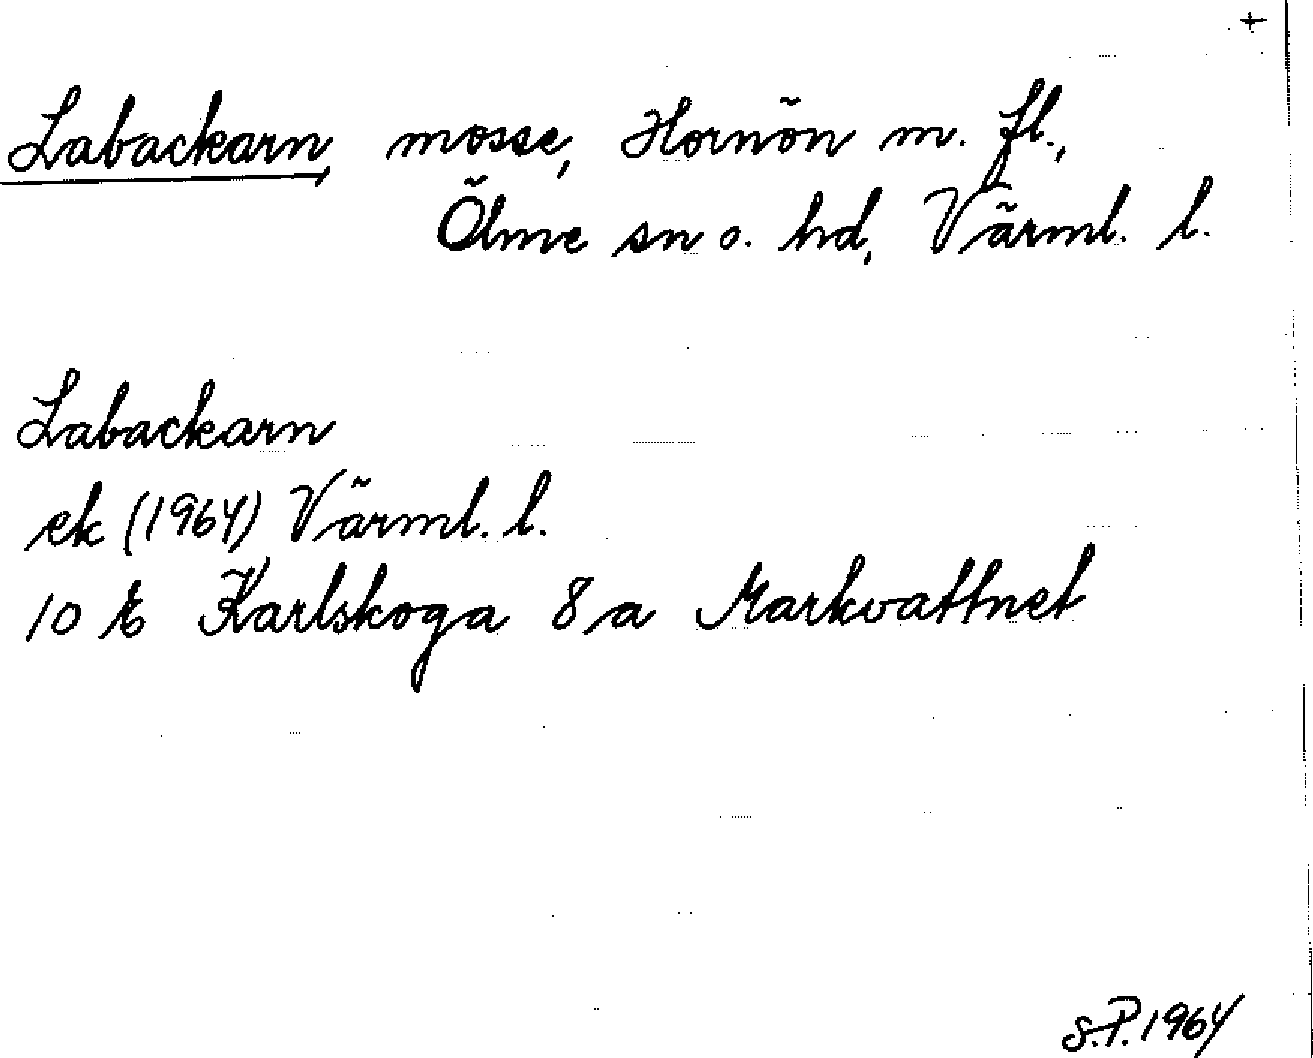 +
Labackarn, mosse, Hornön m. fl.,
Ölme sn o. hd, Värml. l.
Labackarn
ek (1964) Värml. l.
10 E Karlskoga 8 a Markvattnet
S.P. 1964